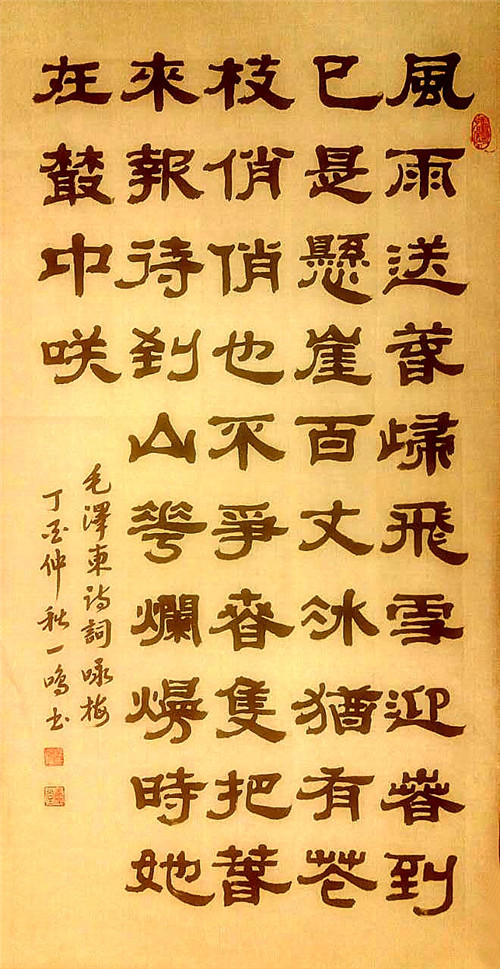 風雨送春歸飛雪迎春到
已是懸崖百丈冰猶有花
枝俏俏也不爭春隻把春
來報待到山花爛熳時她
在叢中咲
毛澤東诗詞咏梅
丁酉仲秋一鳴书